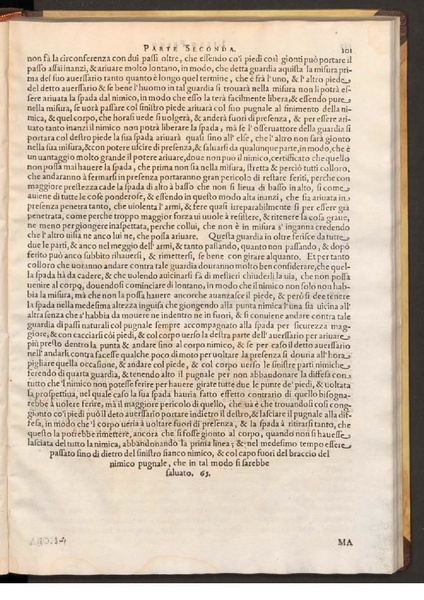 PARTE SECONDA. 101
non fà la circonferenza con dui passi oltre, che essendo co'i piedi così gionti può portare il
passo assai inanzi, & ariuare molto lontano, in modo, che detta guardia aquista la misura pri-
ma del suo auerssario tanto quanto è longo quel termine, che è frà l'uno, & l'altro piede
del detto auerssario & se bene l'huomo in tal guardia si trouarà nella misura non li potrà es-
sere ariuata la spada dal nimico, in modo che esso la terà facilmente libera, & essendo pure
nella misura, se uorà passare col sinistro piede ariuarà col suo pugnale al finimento della ni-
mica, & quel corpo, che horasi uede si uolgerà, & anderà fuori di presenza, & per essere ari-
uato tanto inanzi il nimico non potrà liberare la spada, mà se l'osseruattore della guardia si
portarà col destro piede la sua spada ariuarà quasi sino all' else, che l'altro non sarà gionto
nella sua misura, & con potere uscire di presenza, & saluarsi da qualunque parte, in modo, che è
un uantaggio molto grande il potere ariuare, doue non può il nimico, certificato che quello
non possa mai hauere la spada, che prima non sia nella misura, stretta & perciò tutti colloro,
che andaranno à fermarsi in presenza portaranno gran pericolo di restare feriti, perche con
maggiore prestezza cade la spada di alto à basso che non si lieua di basso in alto, si come
auiene di tutte le cose ponderose, & essendo in questo modo alta inanzi, che sia ariuata in
presenza penetra tanto, che uiolenta l'armi, & fere quasi irreparabilmente si per esser già
penetrata, come perche troppo maggior forza ui uuole à resistere, & ritenere la cosa graue,
ne meno per giongere inaspettata, perche collui, che non è in misura s'inganna credendo
che l'altro uisia ne anco lui ne, che possa ariuare. Questa guardia in oltre ferisce da tutte
due le parti, & anco nel meggio dell' armi, & tanto passando, quanto non passando, & dopò
ferito può anco subbito rihauersi, & rimettersi, se bene con girare alquanto. Et per tanto
colloro che uoranno andare contra tale guardia douranno molto ben considerare, che quel-
la spada hà da cadere, & che uolendo auicinarsi fà di mestieri chiuderli la uia, che non possa
uenire al corpo, douendosi cominciare di lontano, in modo che il nimico non solo non hab-
bia la misura, mà che non la possa hauere ancorche auanzasse il piede, & però si dee tenere
la spada nella medesima altezza in guisa che giongendo alla punta nimica l'una sia uicina all'
altra senza che s'habbia da mouere ne indentro ne in fuori, & si conuiene andare contra tale
guardia di passi naturali col pugnale sempre accompagnato alla spada per sicurezza mag-
giore, & con cacciarsi coi piedi, & col corpo uerso la destra parte dell' auerssario per ariuare
più presto dentro la punta & andare sino al corpo nimico, & se per caso il detto auerssario
nell' andarli contra facesse qualche poco di moto per uoltare la presenza si douria all'hora
pigliare quella occasione, & andare col piede, & col corpo uerso le sinistre parti nimiche
facendo di quarta guardia, & tenendo alto il pugnale per non abbandonare la diffesa con
tutto che'l nimico non potesse ferire per hauere girate tutte due le punte de' piedi, & uoltata
la prospettiua, nel quale caso la sua spada hauria fatto effetto contrario di quello bisogna-
rebbe à uolere ferire, mà il maggiore pericolo di quello, che uà è che trouandosi così con-
gionto co'i piedi può il deto auerssario portare indietro il destro, & lasciare il pugnale alla dif-
fesa, in modo che'l corpo ueria à uoltare fuori di presenza, & la spada à ritirarsi tanto, che
questo la potrebbe rimettere, ancora che si fosse gionto al corpo, quando non si hauesse
lasciata del tutto la nimica, abbandonando la prima linea; & nel medesimo tempo essere
passato sino di dietro del sinistro fianco nimico, & col capo fuori del braccio del
nimico pugnale, che in tal modo si sarebbe
saluato. 65.
MA